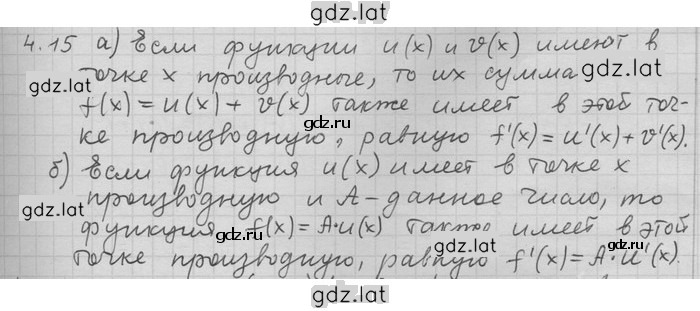 gdz.lat
4.15 а) Если функции u(x) и v(x) имеют в
gdz.lat
точке x производные, то их сумма
gdz.lat
f(x) = u(x) + v(x) также имеет в этой точ-
gdz.lat
ке производную, равную f'(x) = u'(x) + v'(x).
gdz.lat
б) Если функция u(x) имеет в точке x
gdz.lat
производную и A - данное число, то
gdz.lat
функция f(x) = A·u(x) также имеет в этой
gdz.lat
точке производную, равную f'(x) = A·u'(x).
gdz.lat